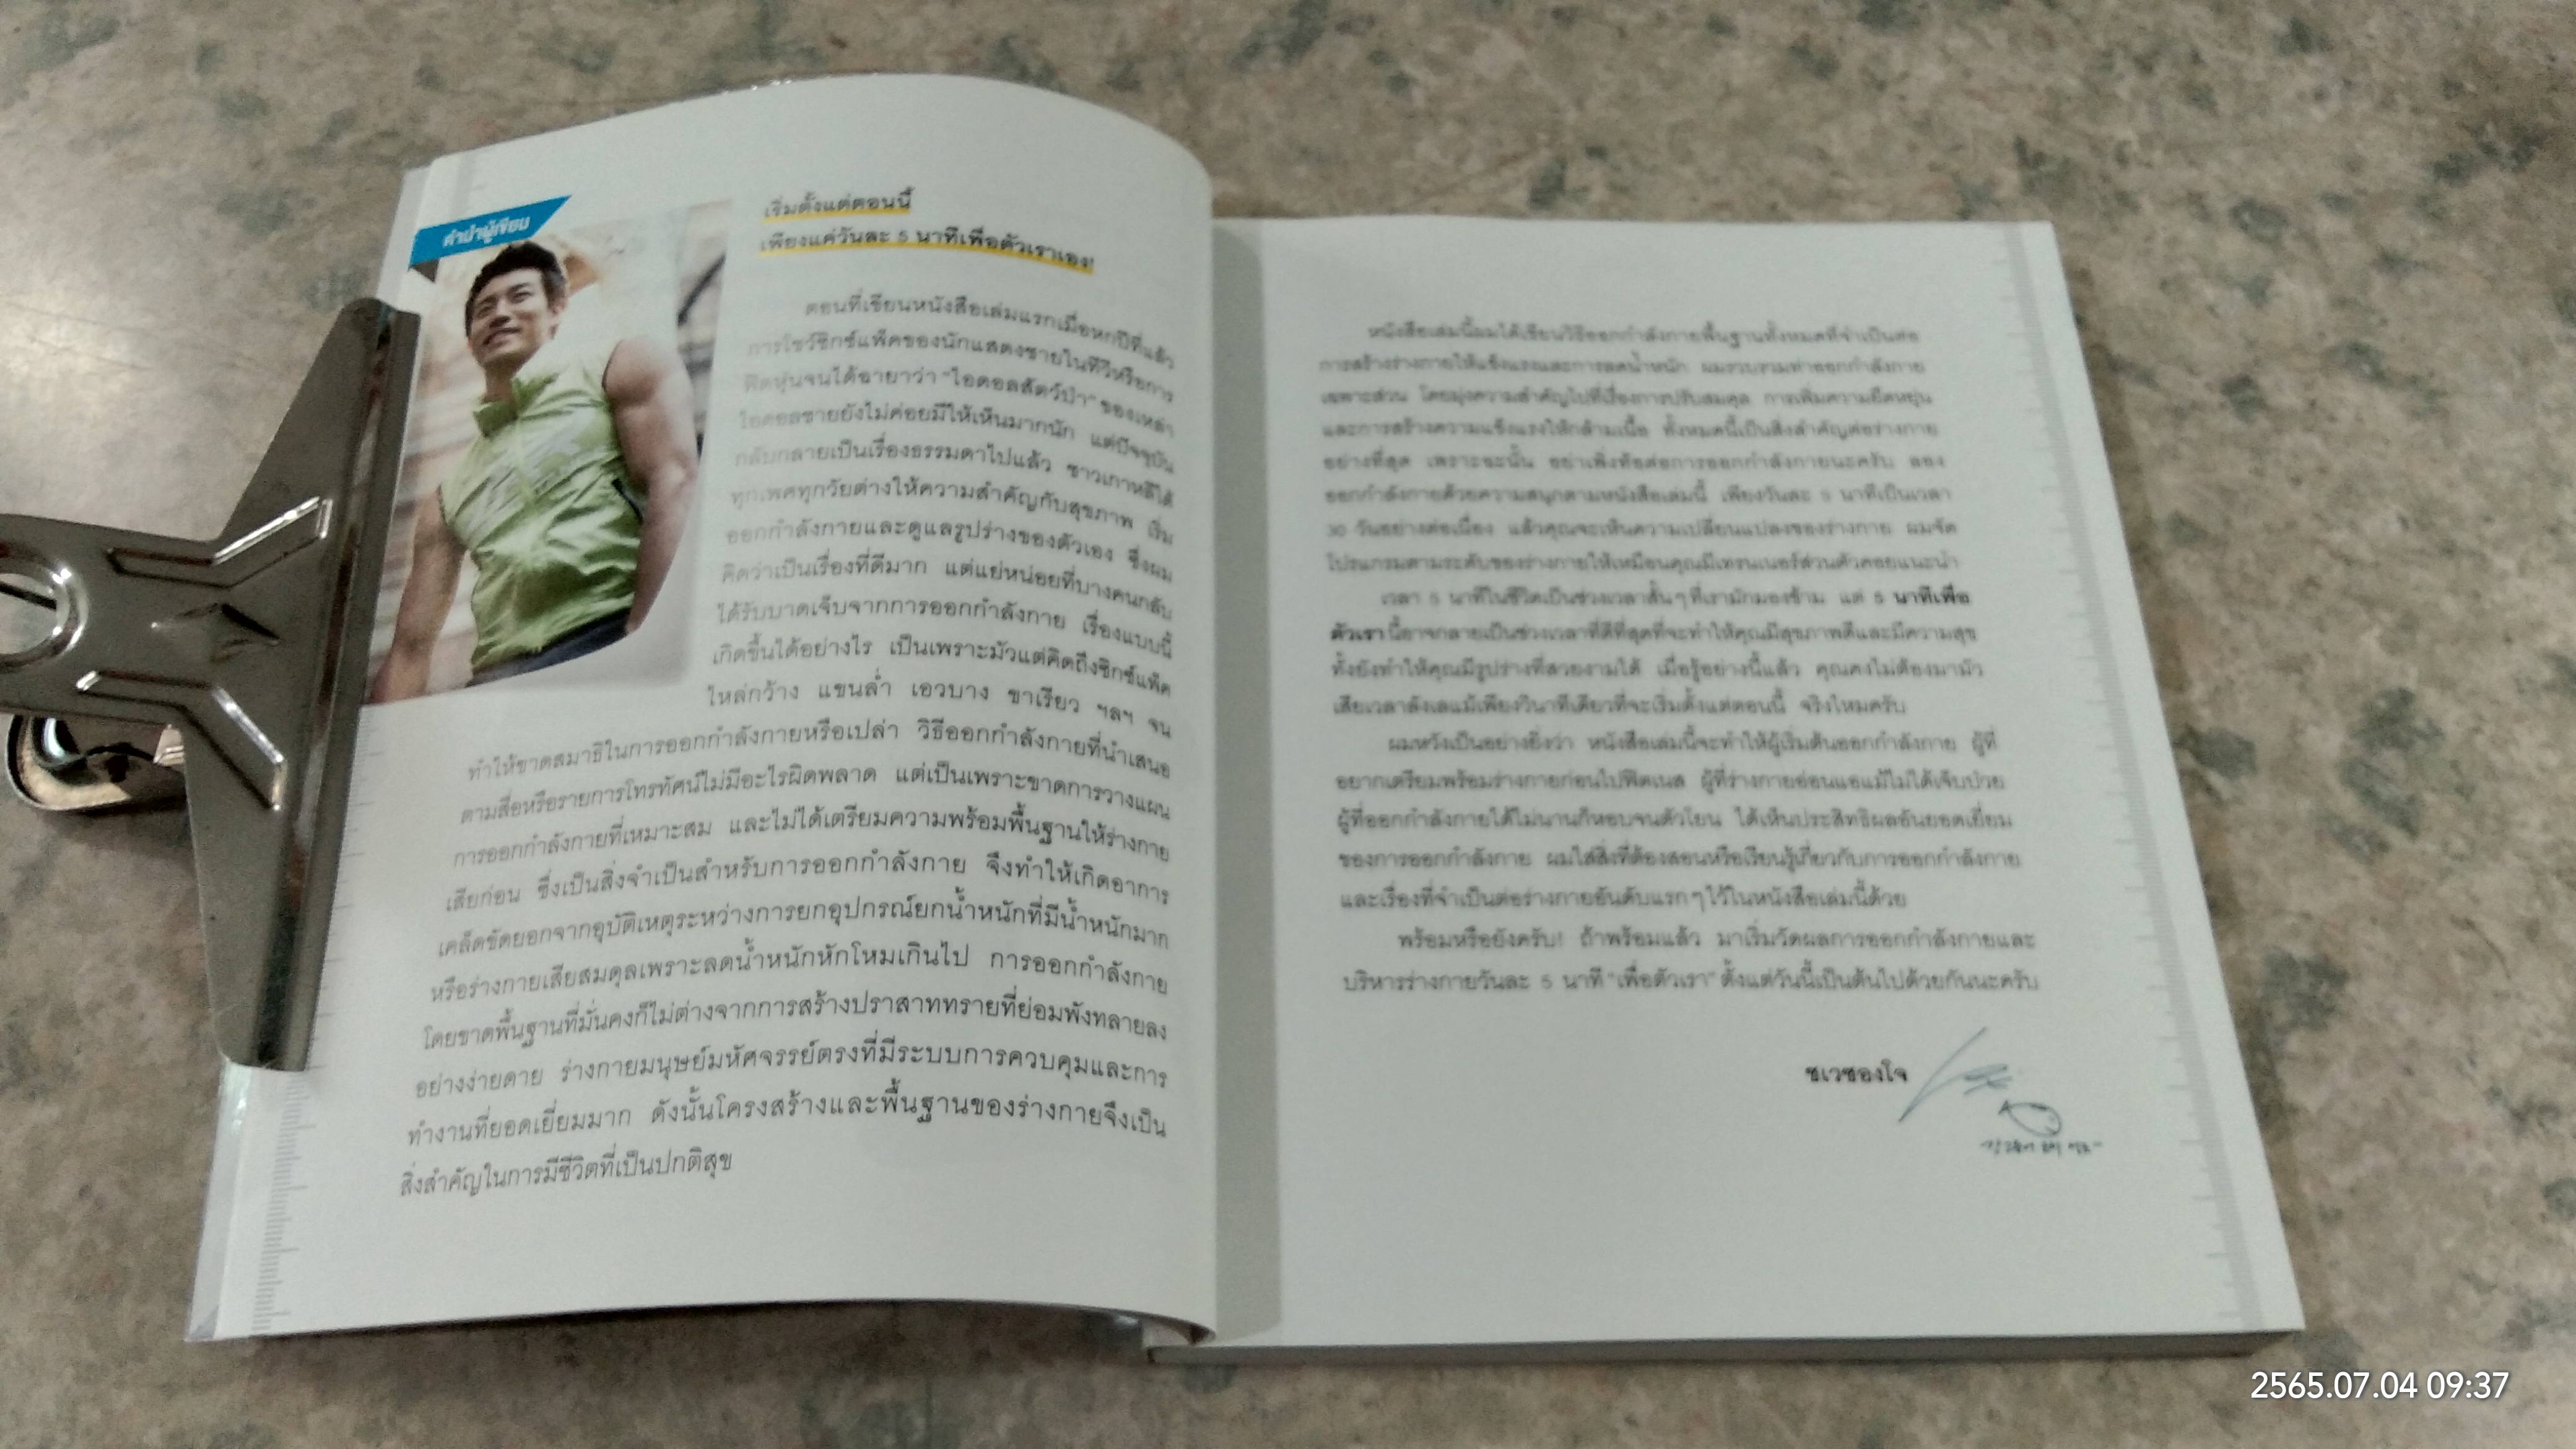 คำนำผู้เขียน
เริ่มตั้งแต่ตอนนี้
เพียงแค่วันละ 5 นาทีเพื่อตัวเราเอง!
ตอนที่เขียนหนังสือเล่มแรกเมื่อหกปีที่แล้ว
การโชว์ซิกซ์แพ็คของนักแสดงชายในทีวีหรือการ
ฟิตหุ่นจนได้ฉายาว่า "ไอดอลสัตว์ป่า" ของเหล่า
ไอดอลชายยังไม่ค่อยมีให้เห็นมากนัก แต่ปัจจุบัน
กลับกลายเป็นเรื่องธรรมดาไปแล้ว ชาวเกาหลีใต้
ทุกเพศทุกวัยต่างให้ความสำคัญกับสุขภาพ เริ่ม
ออกกำลังกายและดูแลรูปร่างของตัวเอง ซึ่งผม
คิดว่าเป็นเรื่องที่ดีมาก แต่แย่หน่อยที่บางคนกลับ
ได้รับบาดเจ็บจากการออกกำลังกาย เรื่องแบบนี้
เกิดขึ้นได้อย่างไร เป็นเพราะมัวแต่คิดถึงซิกซ์แพ็ค
ไหล่กว้าง แขนล่ำ เอวบาง ขาเรียว ฯลฯ จน
ทำให้ขาดสมาธิในการออกกำลังกายหรือเปล่า วิธีออกกำลังกายที่นำเสนอ
ตามสื่อหรือรายการโทรทัศน์ไม่มีอะไรผิดพลาด แต่เป็นเพราะขาดการวางแผน
การออกกำลังกายที่เหมาะสม และไม่ได้เตรียมความพร้อมพื้นฐานให้ร่างกาย
เสียก่อน ซึ่งเป็นสิ่งจำเป็นสำหรับการออกกำลังกาย จึงทำให้เกิดอาการ
เคล็ดขัดยอกจากอุบัติเหตุระหว่างการยกอุปกรณ์ยกน้ำหนักที่มีน้ำหนักมาก
หรือร่างกายเสียสมดุลเพราะลดน้ำหนักหักโหมเกินไป การออกกำลังกาย
โดยขาดพื้นฐานที่มั่นคงก็ไม่ต่างจากการสร้างปราสาททรายที่ย่อมพังทลายลง
อย่างง่ายดาย ร่างกายมนุษย์มหัศจรรย์ตรงที่มีระบบการควบคุมและการ
ทำงานที่ยอดเยี่ยมมาก ดังนั้นโครงสร้างและพื้นฐานของร่างกายจึงเป็น
สิ่งสำคัญในการมีชีวิตที่เป็นปกติสุข
หนังสือเล่มนี้ผมได้เขียนวิธีออกกำลังกายพื้นฐานทั้งหมดที่จำเป็นต่อ
การสร้างร่างกายให้แข็งแรงและการลดน้ำหนัก ผมรวบรวมท่าออกกำลังกาย
เฉพาะส่วน โดยมุ่งความสำคัญไปที่เรื่องการปรับสมดุล การเพิ่มความยืดหยุ่น
และการสร้างความแข็งแรงให้กล้ามเนื้อ ทั้งหมดนี้เป็นสิ่งสำคัญต่อร่างกาย
อย่างที่สุด เพราะฉะนั้น อย่าเพิ่งท้อต่อการออกกำลังกายนะครับ ลอง
ออกกำลังกายด้วยความสนุกตามหนังสือเล่มนี้ เพียงวันละ 5 นาทีเป็นเวลา
30 วันอย่างต่อเนื่อง แล้วคุณจะเห็นความเปลี่ยนแปลงของร่างกาย ผมจัด
โปรแกรมตามระดับของร่างกายให้เหมือนคุณมีเทรนเนอร์ส่วนตัวคอยแนะนำ
เวลา 5 นาทีในชีวิตเป็นช่วงเวลาสั้นๆ ที่เรามักมองข้าม แต่ 5 นาทีเพื่อ
ตัวเรานี้อาจกลายเป็นช่วงเวลาที่ดีที่สุดที่จะทำให้คุณมีสุขภาพดีและมีความสุข
ทั้งยังทำให้คุณมีรูปร่างที่สวยงามได้ เมื่อรู้อย่างนี้แล้ว คุณคงไม่ต้องมามัว
เสียเวลาลังเลแม้เพียงวินาทีเดียวที่จะเริ่มตั้งแต่ตอนนี้ จริงไหมครับ
ผมหวังเป็นอย่างยิ่งว่า หนังสือเล่มนี้จะทำให้ผู้เริ่มต้นออกกำลังกาย ผู้ที่
อยากเตรียมพร้อมร่างกายก่อนไปฟิตเนส ผู้ที่ร่างกายอ่อนแอแม้ไม่ได้เจ็บป่วย
ผู้ที่ออกกำลังกายได้ไม่นานก็หอบจนตัวโยน ได้เห็นประสิทธิผลอันยอดเยี่ยม
ของการออกกำลังกาย ผมใส่สิ่งที่ต้องสอนหรือเรียนรู้เกี่ยวกับการออกกำลังกาย
และเรื่องที่จำเป็นต่อร่างกายอันดับแรกๆ ไว้ในหนังสือเล่มนี้ด้วย
พร้อมหรือยังครับ! ถ้าพร้อมแล้ว มาเริ่มวัดผลการออกกำลังกายและ
บริหารร่างกายวันละ 5 นาที "เพื่อตัวเรา" ตั้งแต่วันนี้เป็นต้นไปด้วยกันนะครับ
ชเวซองโจ
2565.07.04 09:37